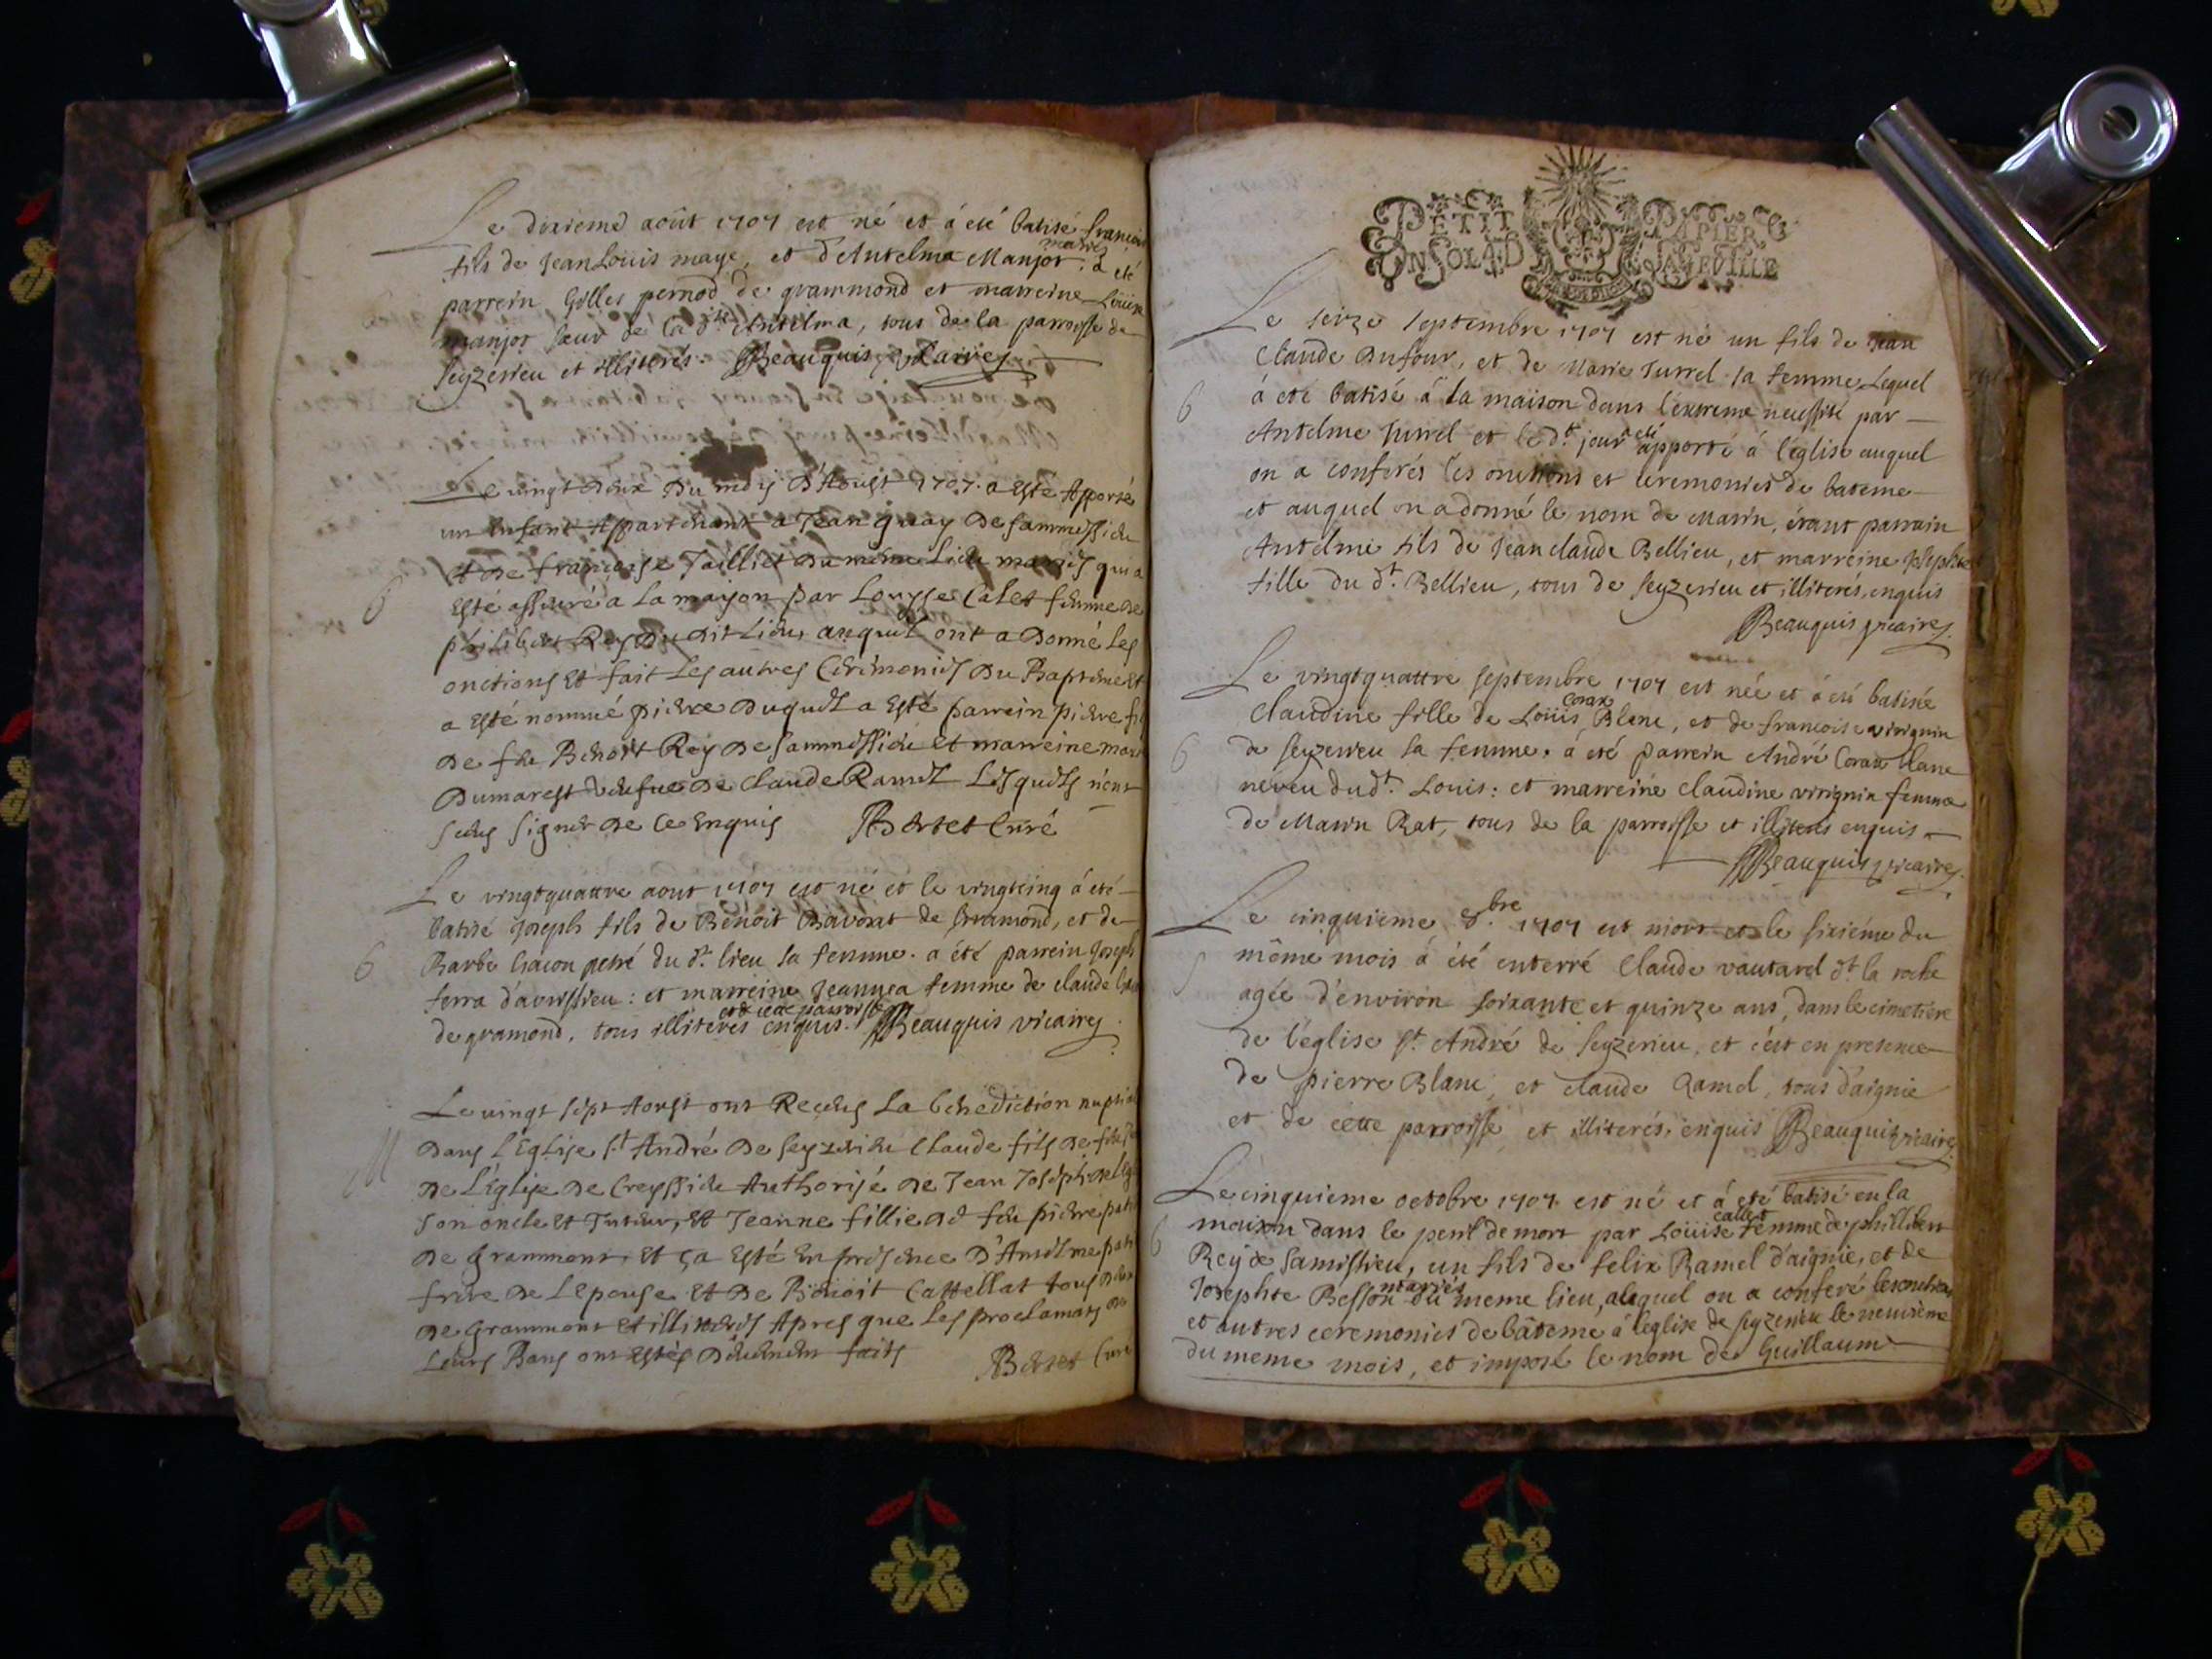 Le dixieme août 1707 est né et á eté batisé francois
fils de Jean Louis maye, et d'Antelma Manjot mariés, á eté
parrein Gilles pernod de grammond et marreine Louise
manjot sœur de la d.ite Antelma, tous de la parroisse de
seyzerieu et illiterés. Beauquis vicaire
Le vingt deux Du mois D'Aoust 1707. a esté Apporté
un Enfant Appartenant a Jean guay De sammessieu
et De françoise Tailliet du même Lieu mariés qui a
Esté assuré a La mayson par Louyse Calet femme de
philibert Rey Du dit Lieu auquel ont a Donné Les
onctions Et fait Les autres Cérémonies Du Baptême Et
a Esté nommé pierre Duquel a Esté parrein pierre fil
De feu Benoit Rey De sammessieu et marreine
Dumarest veufue De Claude Ramel Lesquels n'ont
sceus signer De ce Enquis B Bertet Curé
6
Le vingtquattre aout 1707 est né et le vingtcinq á eté
batisé Joseph fils de Benoit Bavorat de Gramond, et de
Barbe du d.t lieu sa femme. a été parrein Joseph
ferra d'avrissieu: et marreine Jeanne femme de claude
de gramond. tous illiterés et de cette parroisse enquis. Beauquis vicaire
6
Le vingt sept Aoust ont Receus La benediction nuptial
Dans L'Eglise S.t André De seyzerieu Claude fils De feu
De L'Eglise De Creyssieu Authorisé De Jean Joseph De L'Egl
son oncle Et Tuteur, Et Jeanne fillie De feu pierre
De Grammont, Et ça Esté En presence D'Antelme
frere De L'Epouse Et De Benoit Cattellat tous
De Grammont et illiterés Apres que Les proclamats De
Leurs Bans ont Estés Deuement faits B Bertet Curé
M
PETIT PAPIER
UN SOL 4 D LA FEUILLE
Le seize septembre 1707 est né un fils de jean
Claude Dufour, et de Marie Jurrel sa femme Lequel
á eté batisé á la maison dans l'extreme necessité par
Antelme Jurrel et le d.t jour a eté apporté á l'église auquel
on a conferés les onctions et ceremonies de bateme
et auquel on a donné le nom de Marin, étant parrain
Antelme fils de Jean claude Bellieu, et marreine Josephte
fille du d.t Bellieu, tous de seyzerieu et illiterés, enquis
Beauquis vicaire
6
Le vingtquattre septembre 1707 est née et á eté batisée
Claudine fille de Loüis Corax Blanc, et de francoise virignin
de seyzerieu sa femme, á eté parrein André Corax blanc
neveu dud.t Louis: et marreine claudine virignin femme
de Marin Rat, tous de la parroisse et illiterés enquis
Beauquis vicaire
6
Le cinquieme 8.bre 1707 est mort et le sixiéme du
même mois á été enterré Claude vautaret d.t la roche
agée d'environ soixante et quinze ans, dans le cimetiere
de l'église S.t André de seyzerieu, et c'est en presence
de pierre Blanc, et claude Ramel, tous d'aignie
et de cette parroisse et illiterés, enquis Beauquis vicaire
S
Le cinquieme octobre 1707 est né et á eté batisé en la
maison dans le peril de mort par Loüise callet femme de phillibert
Rey de samissieu, un fils de felix Ramel d'aignie, et de
Josephte Besson mariés du meme lieu, auquel on a conferé les onctions
et autres ceremonies de bâteme á l'eglise de seyzerieu le neuvième
du meme mois, et imposé le nom de Guillaume
6